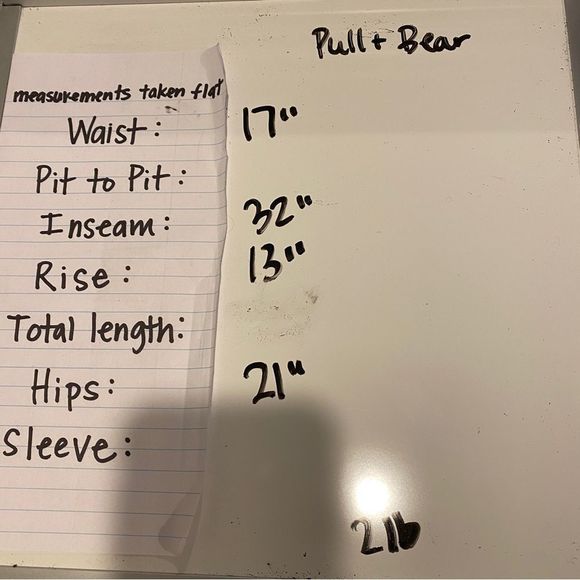 Pull + Bear
measurements taken flat
Waist: 17"
Pit to Pit:
Inseam: 32"
Rise: 13"
Total length:
Hips: 21"
Sleeve:
2lb